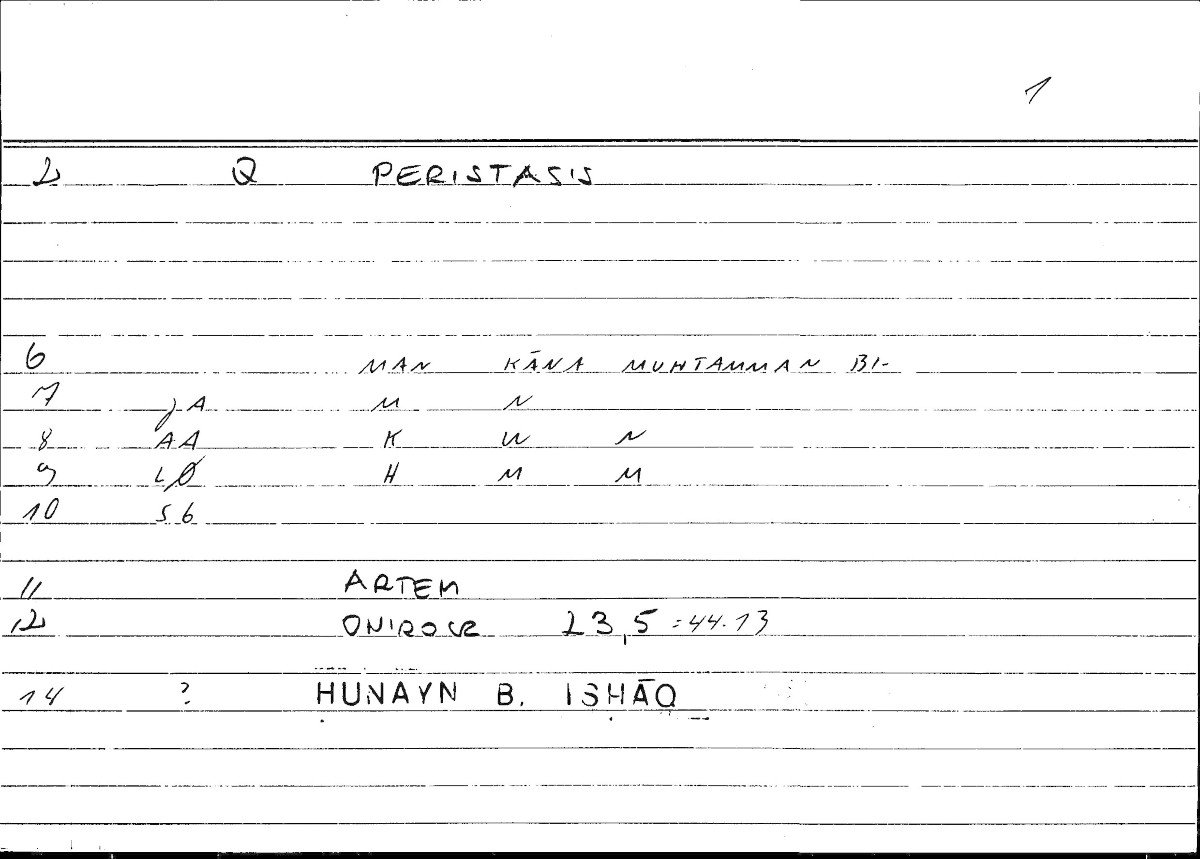 1
2 Q PERISTASIS
6 MAN KĀNA MUHTAMMAN BI-
7 JA M N
8 AA K W N
9 LØ H M M
10 S6
11 ARTEM
12 ONIROCR 23,5 = 44.13
14 ? ḤUNAYN B. ISḤĀQ